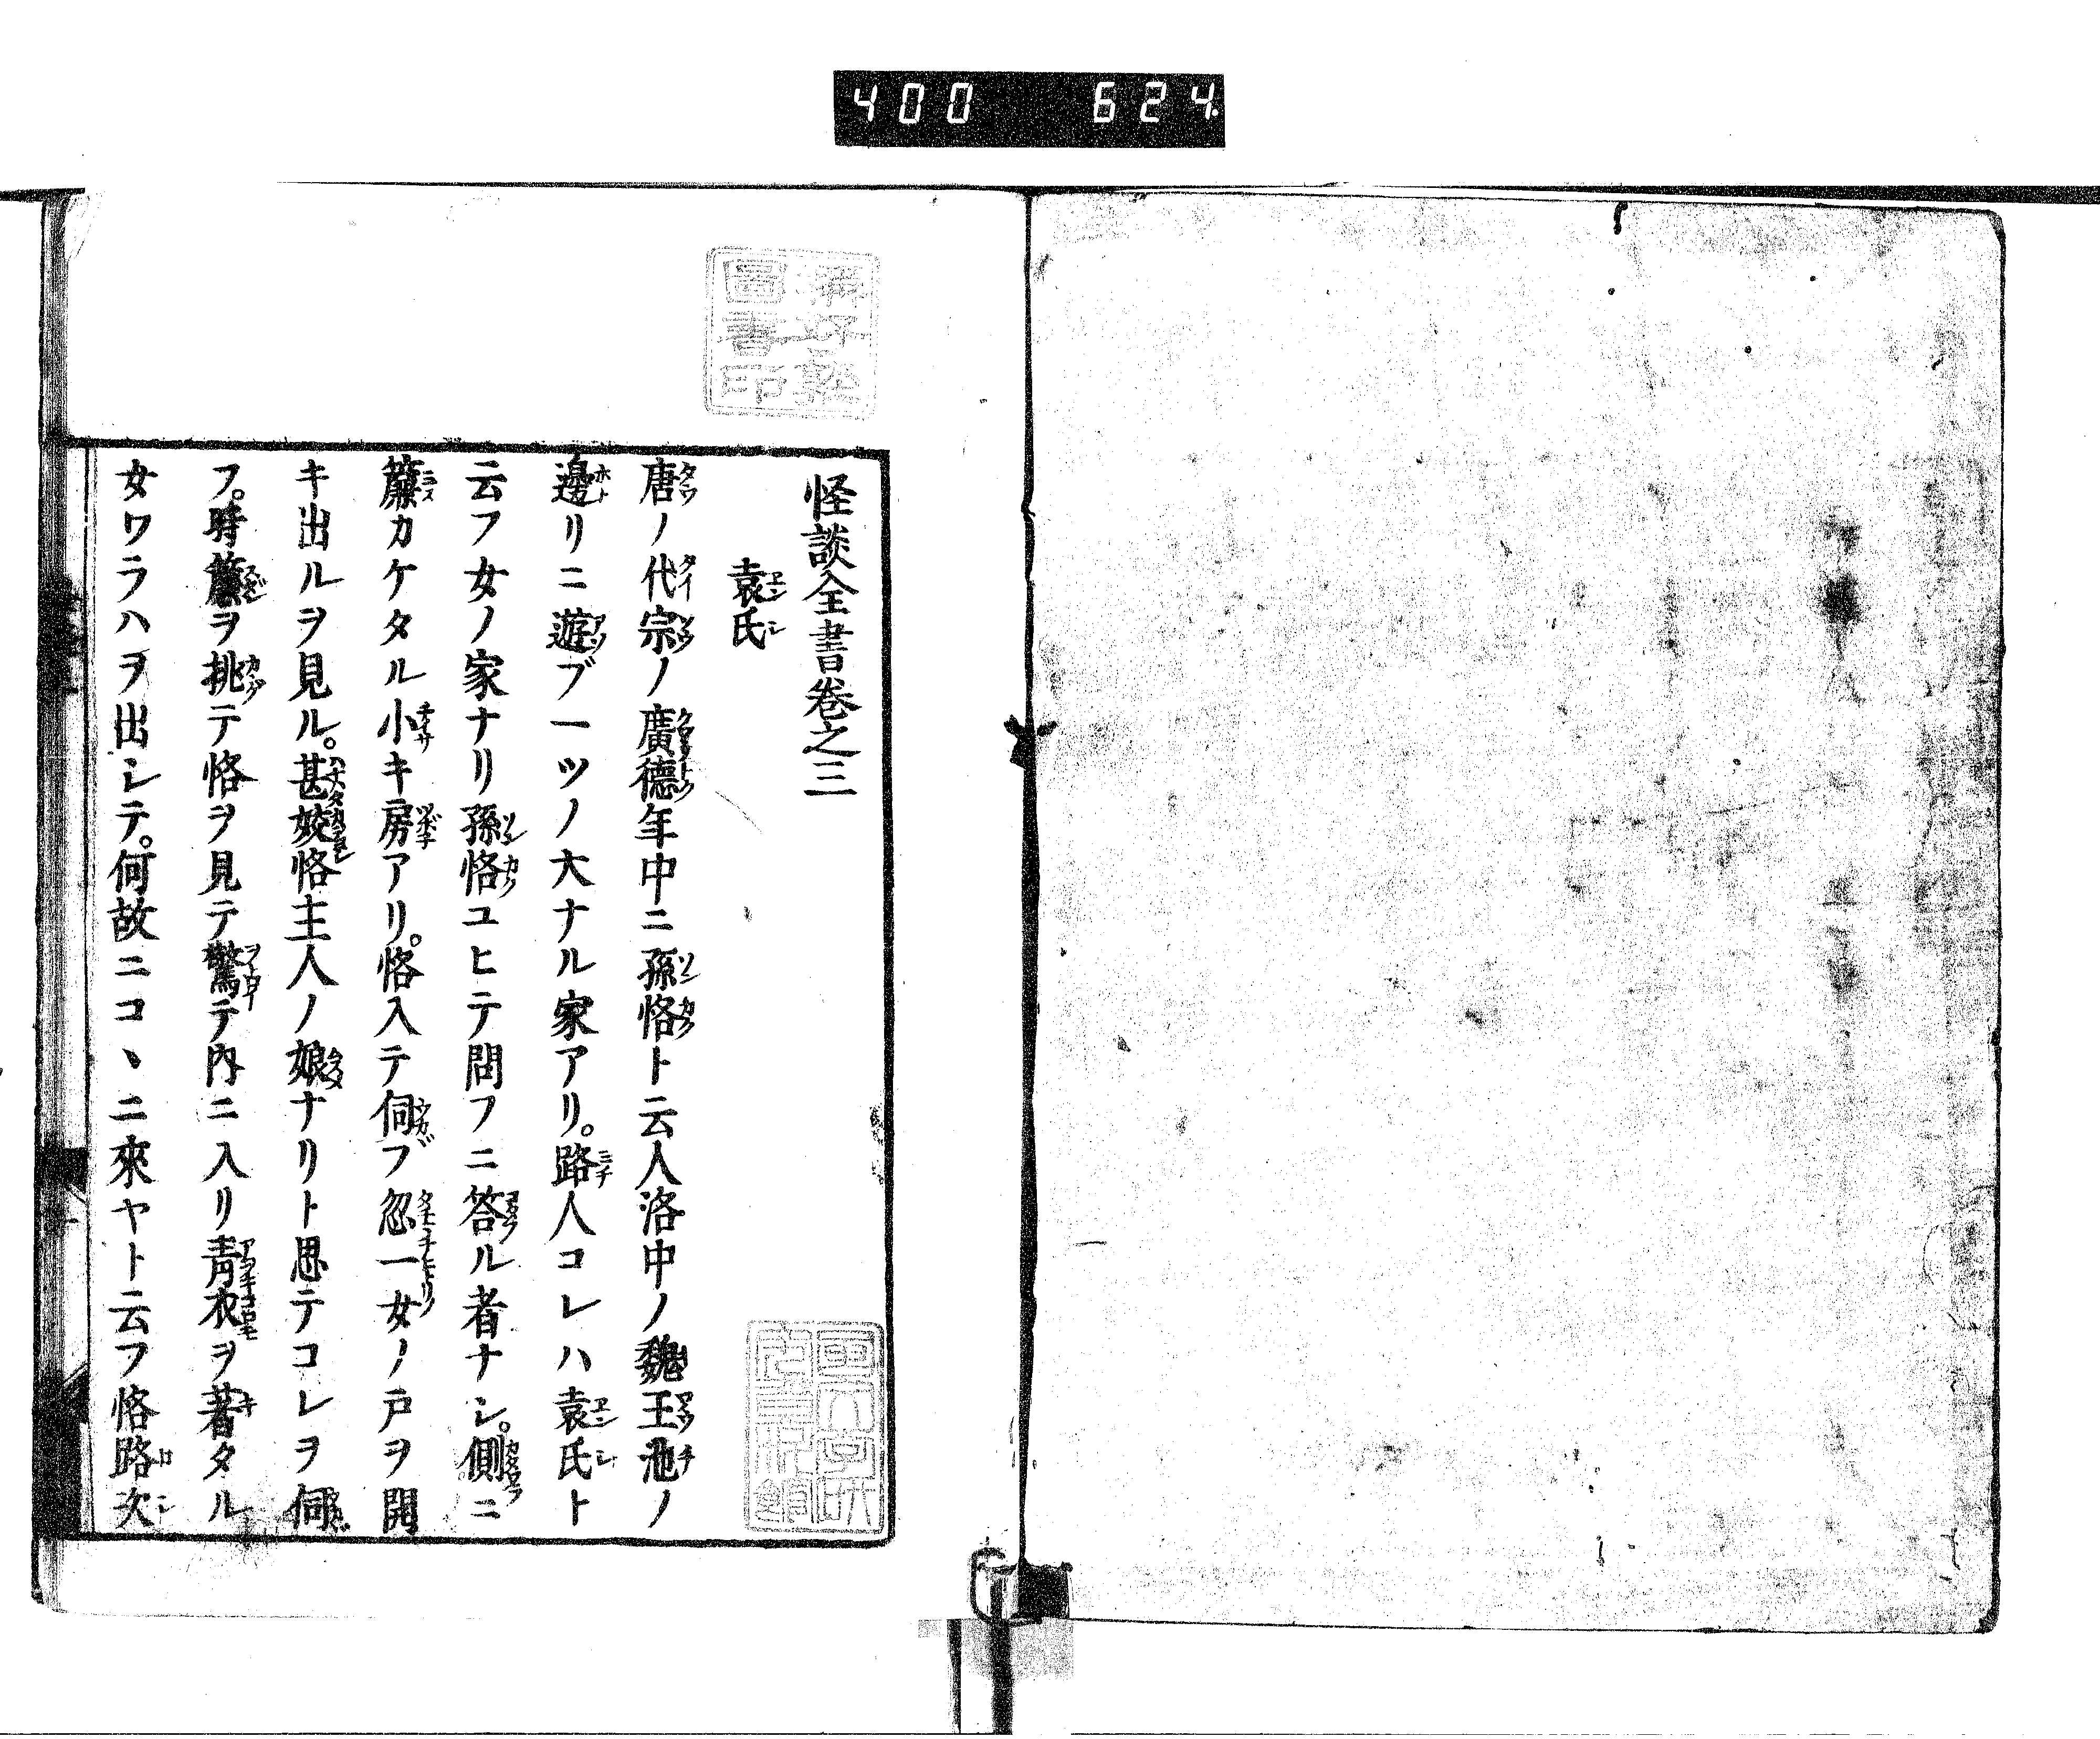 400 624
怪談全書卷之三
袁氏
唐ノ代宗ノ廣德年中ニ孫恪ト云人洛中ノ魏王池ノ
邊リニ遊ブ一ツノ大ナル家アリ。路人コレハ袁氏ト
云フ女ノ家ナリ孫恪ユヒテ問フニ答ル者ナシ。側ニ
簾カケタル小キ房アリ。恪入テ伺ブ忽一女ノ戸ヲ開
キ出ルヲ見ル。甚姣恪主人ノ娘ナリト思テコレヲ伺
フ。時簾ヲ挑テ恪ヲ見テ驚テ內ニ入リ靑衣ヲ著タル
女ワラハヲ出シテ。何故ニコヽニ來ヤト云フ恪路次
圖書印